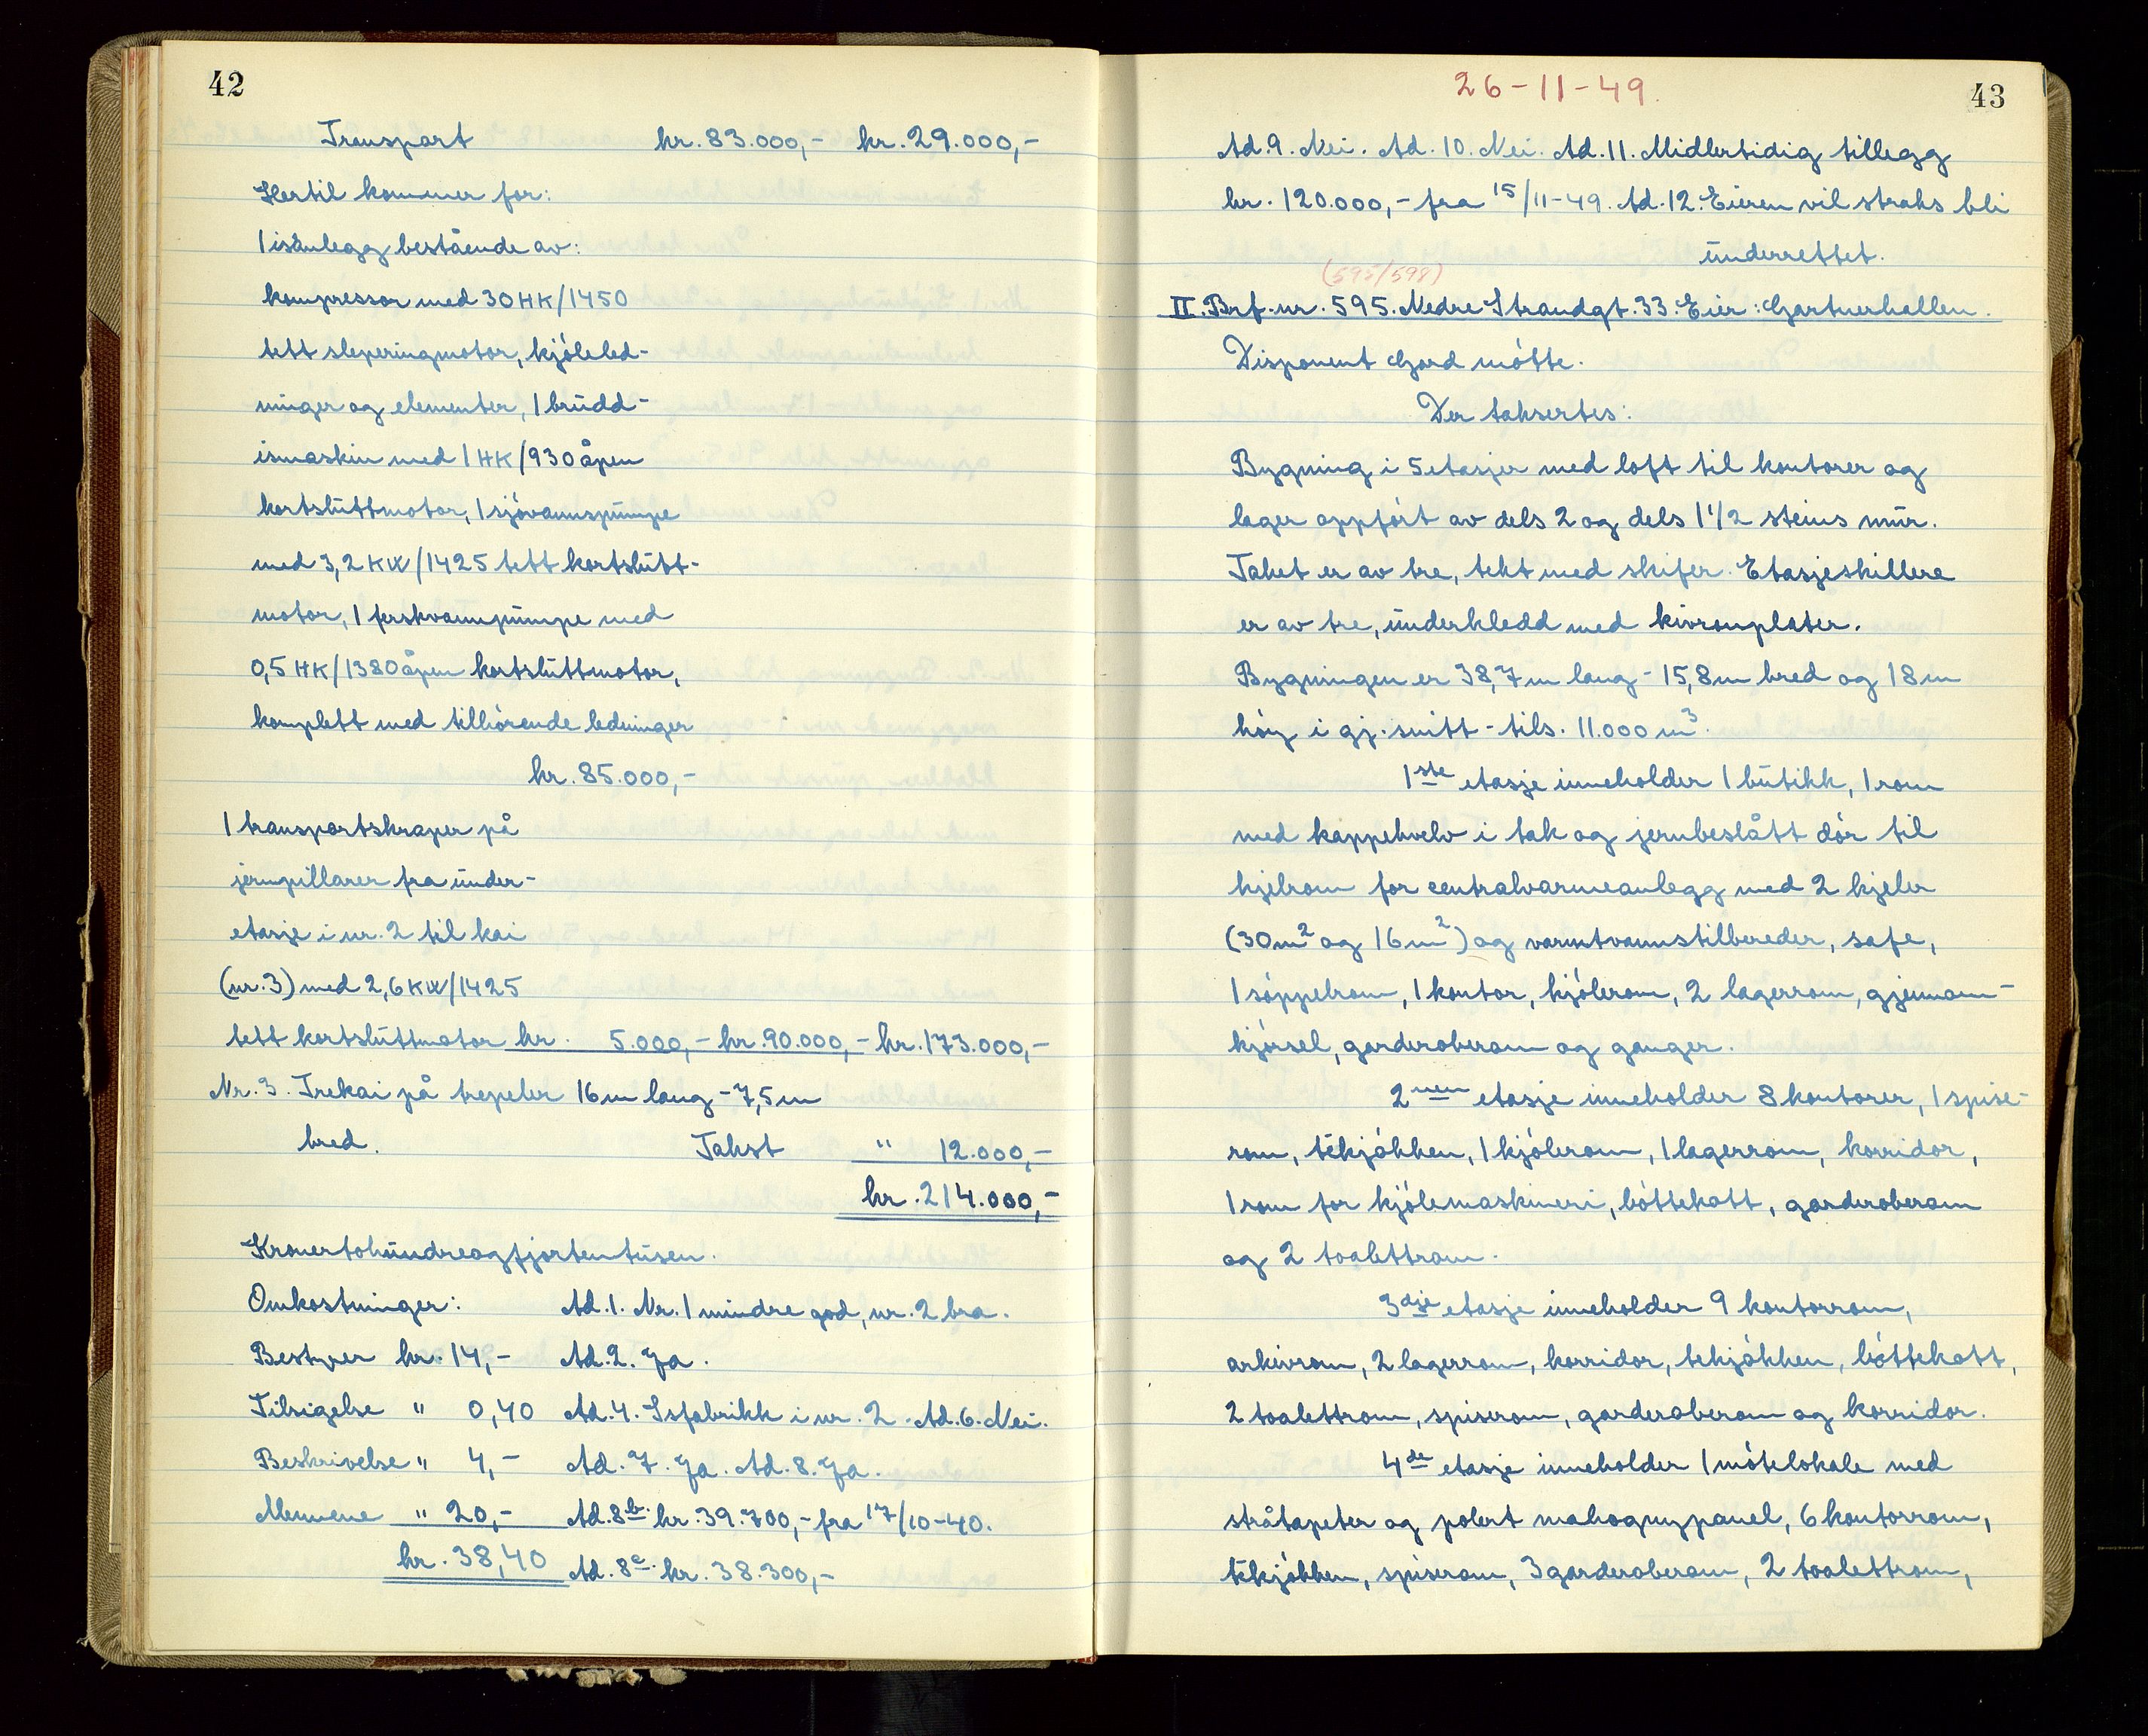 42
Transport kr. 83.000,- kr. 29.000,-
Hertil kommer for:
1 isanlegg bestående av:
kompressor med 30 HK/1450
tett sleperingmotor, kjöleled-
ninger og elementer, 1 brudd-
ismaskin med 1 HK/930 åpen
kortsluttmotor, 1 sjövannspumpe
med 3,2 KW/1425 tett kortslutt-
motor, 1 ferskvannpumpe med
0,5 HK/1380 åpen kortsluttmotor,
komplett med tilhörende ledninger
kr. 85.000,-
1 transportskraper på
jernpillarer fra under-
etasje i nr. 2 til kai
(nr. 3) med 2,6 KW/1425
tett kortsluttmotor kr. 5.000,- kr. 90.000,- kr. 173.000,-
Nr. 3. Trekai på trepeler 16 m lang - 7,5 m
bred. Takst " 12.000,-
kr. 214.000,-
Kronertohundreogfjortentusen.
Omkostninger: Ad. 1. Nr. 1 mindre god, nr. 2 bra.
Bestyrer kr. 14,- Ad. 2. Ja.
Tilsigelse " 0,40 Ad. 4. Isfabrikk i nr. 2. Ad. 6. Nei.
Beskrivelse " 4,- Ad. 7. Ja. Ad. 8. Ja.
Mennene " 20,- Ad. 8b. kr. 39.700,- fra 17/10-40.
kr. 38,40 Ad. 8c. kr. 38.300,-
26-11-49.
43
Ad. 9. Nei. Ad. 10. Nei. Ad. 11. Midlertidig tillegg
kr. 120.000,- fra 15/11-49. Ad. 12. Eieren vil straks bli
underrettet.
(595/598)
II. Brf. nr. 595. Nedre Strandgt. 33. Eier: Gartnerhallen.
Disponent Gard mötte.
Der taksertes:
Bygning i 5 etasjer med loft til kontorer og
lager oppfört av dels 2 og dels 1 1/2 steins mur.
Taket er av tre, tekt med skifer. Etasjeskillere
er av tre, underkledd med kivronplater.
Bygningen er 38,7 m lang - 15,8 m bred og 18 m
höy i gj. snitt - tils. 11.000 m3.
1ste etasje inneholder 1 butikk, 1 rom
med kappehvelv i tak og jernbeslått dör til
kjelrom for centralvarmeanlegg med 2 kjeler
(30 m2 og 16 m2) og varmtvannstilbereder, safe,
1 söppelrom, 1 kontor, kjölerom, 2 lagerrom, gjennom-
kjörsel, garderoberom og ganger.
2nen etasje inneholder 8 kontorer, 1 spise-
rom, tekjökken, 1 kjölerom, 1 lagerrom, korridor,
1 rom for kjölemaskineri, böttekott, garderoberom
og 2 toalettrom.
3dje etasje inneholder 9 kontorrom,
arkivrom, 2 lagerrom, korridor, tekjökken, böttekott,
2 toalettrom, spiserom, garderoberom og korridor.
4de etasje inneholder 1 mötelokale med
stråtapeter og polert mahognypanel, 6 kontorrom,
tekjökken, spiserom, 3 garderoberom, 2 toalettrom,